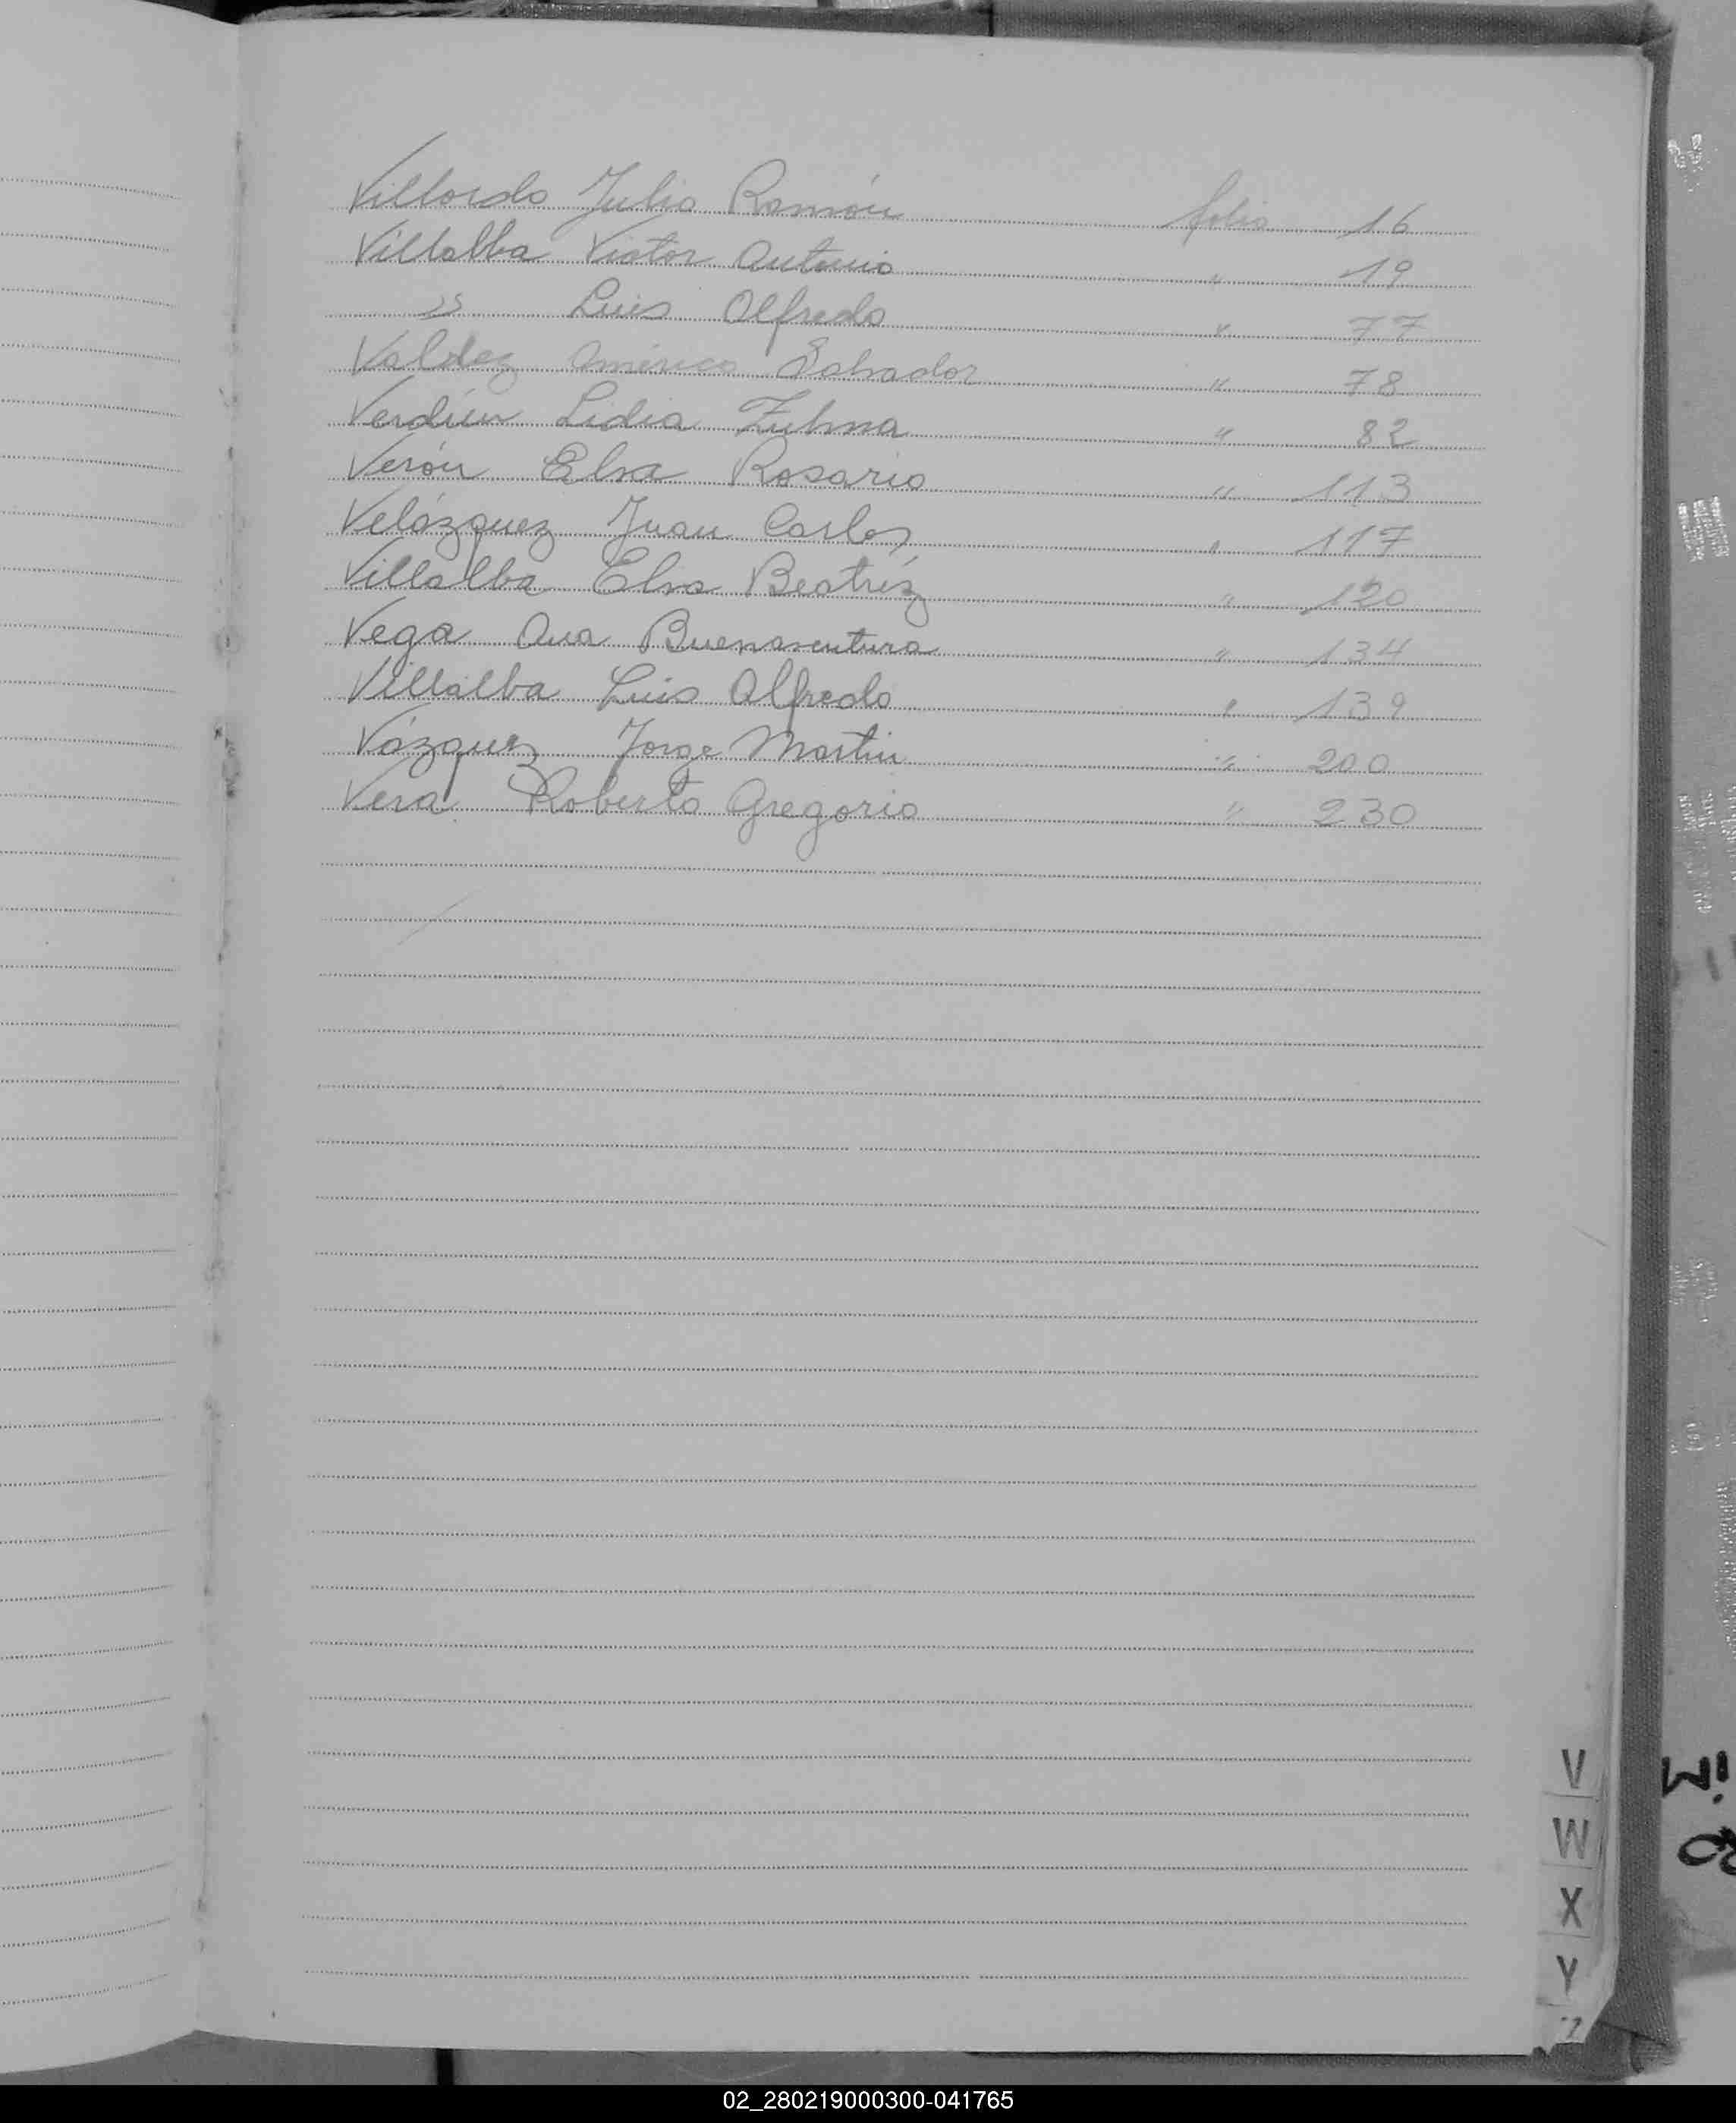 Villordo Julio Ramón folio 16
Villalba Victor Antonio " 19
" Luis Alfredo " 77
Valdez Américo Salvador " 78
Verdún Lidia Zulma " 82
Verón Elsa Rosario " 113
Velázquez Juan Carlos " 117
Villalba Elsa Beatríz " 120
Vega Ana Buenaventura " 134
Villalba Luis Alfredo " 139
Vázquez Jorge Martin " 200
Vera Roberto Gregorio " 230
V
W
X
Y
Z
02_280219000300-041765